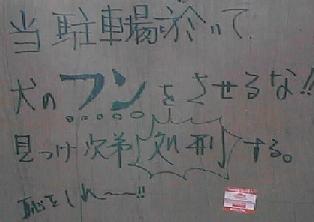 当駐車場於いて
犬のフンをさせるな!!
見つけ次第処刑する。
恥をしれ〜〜!!